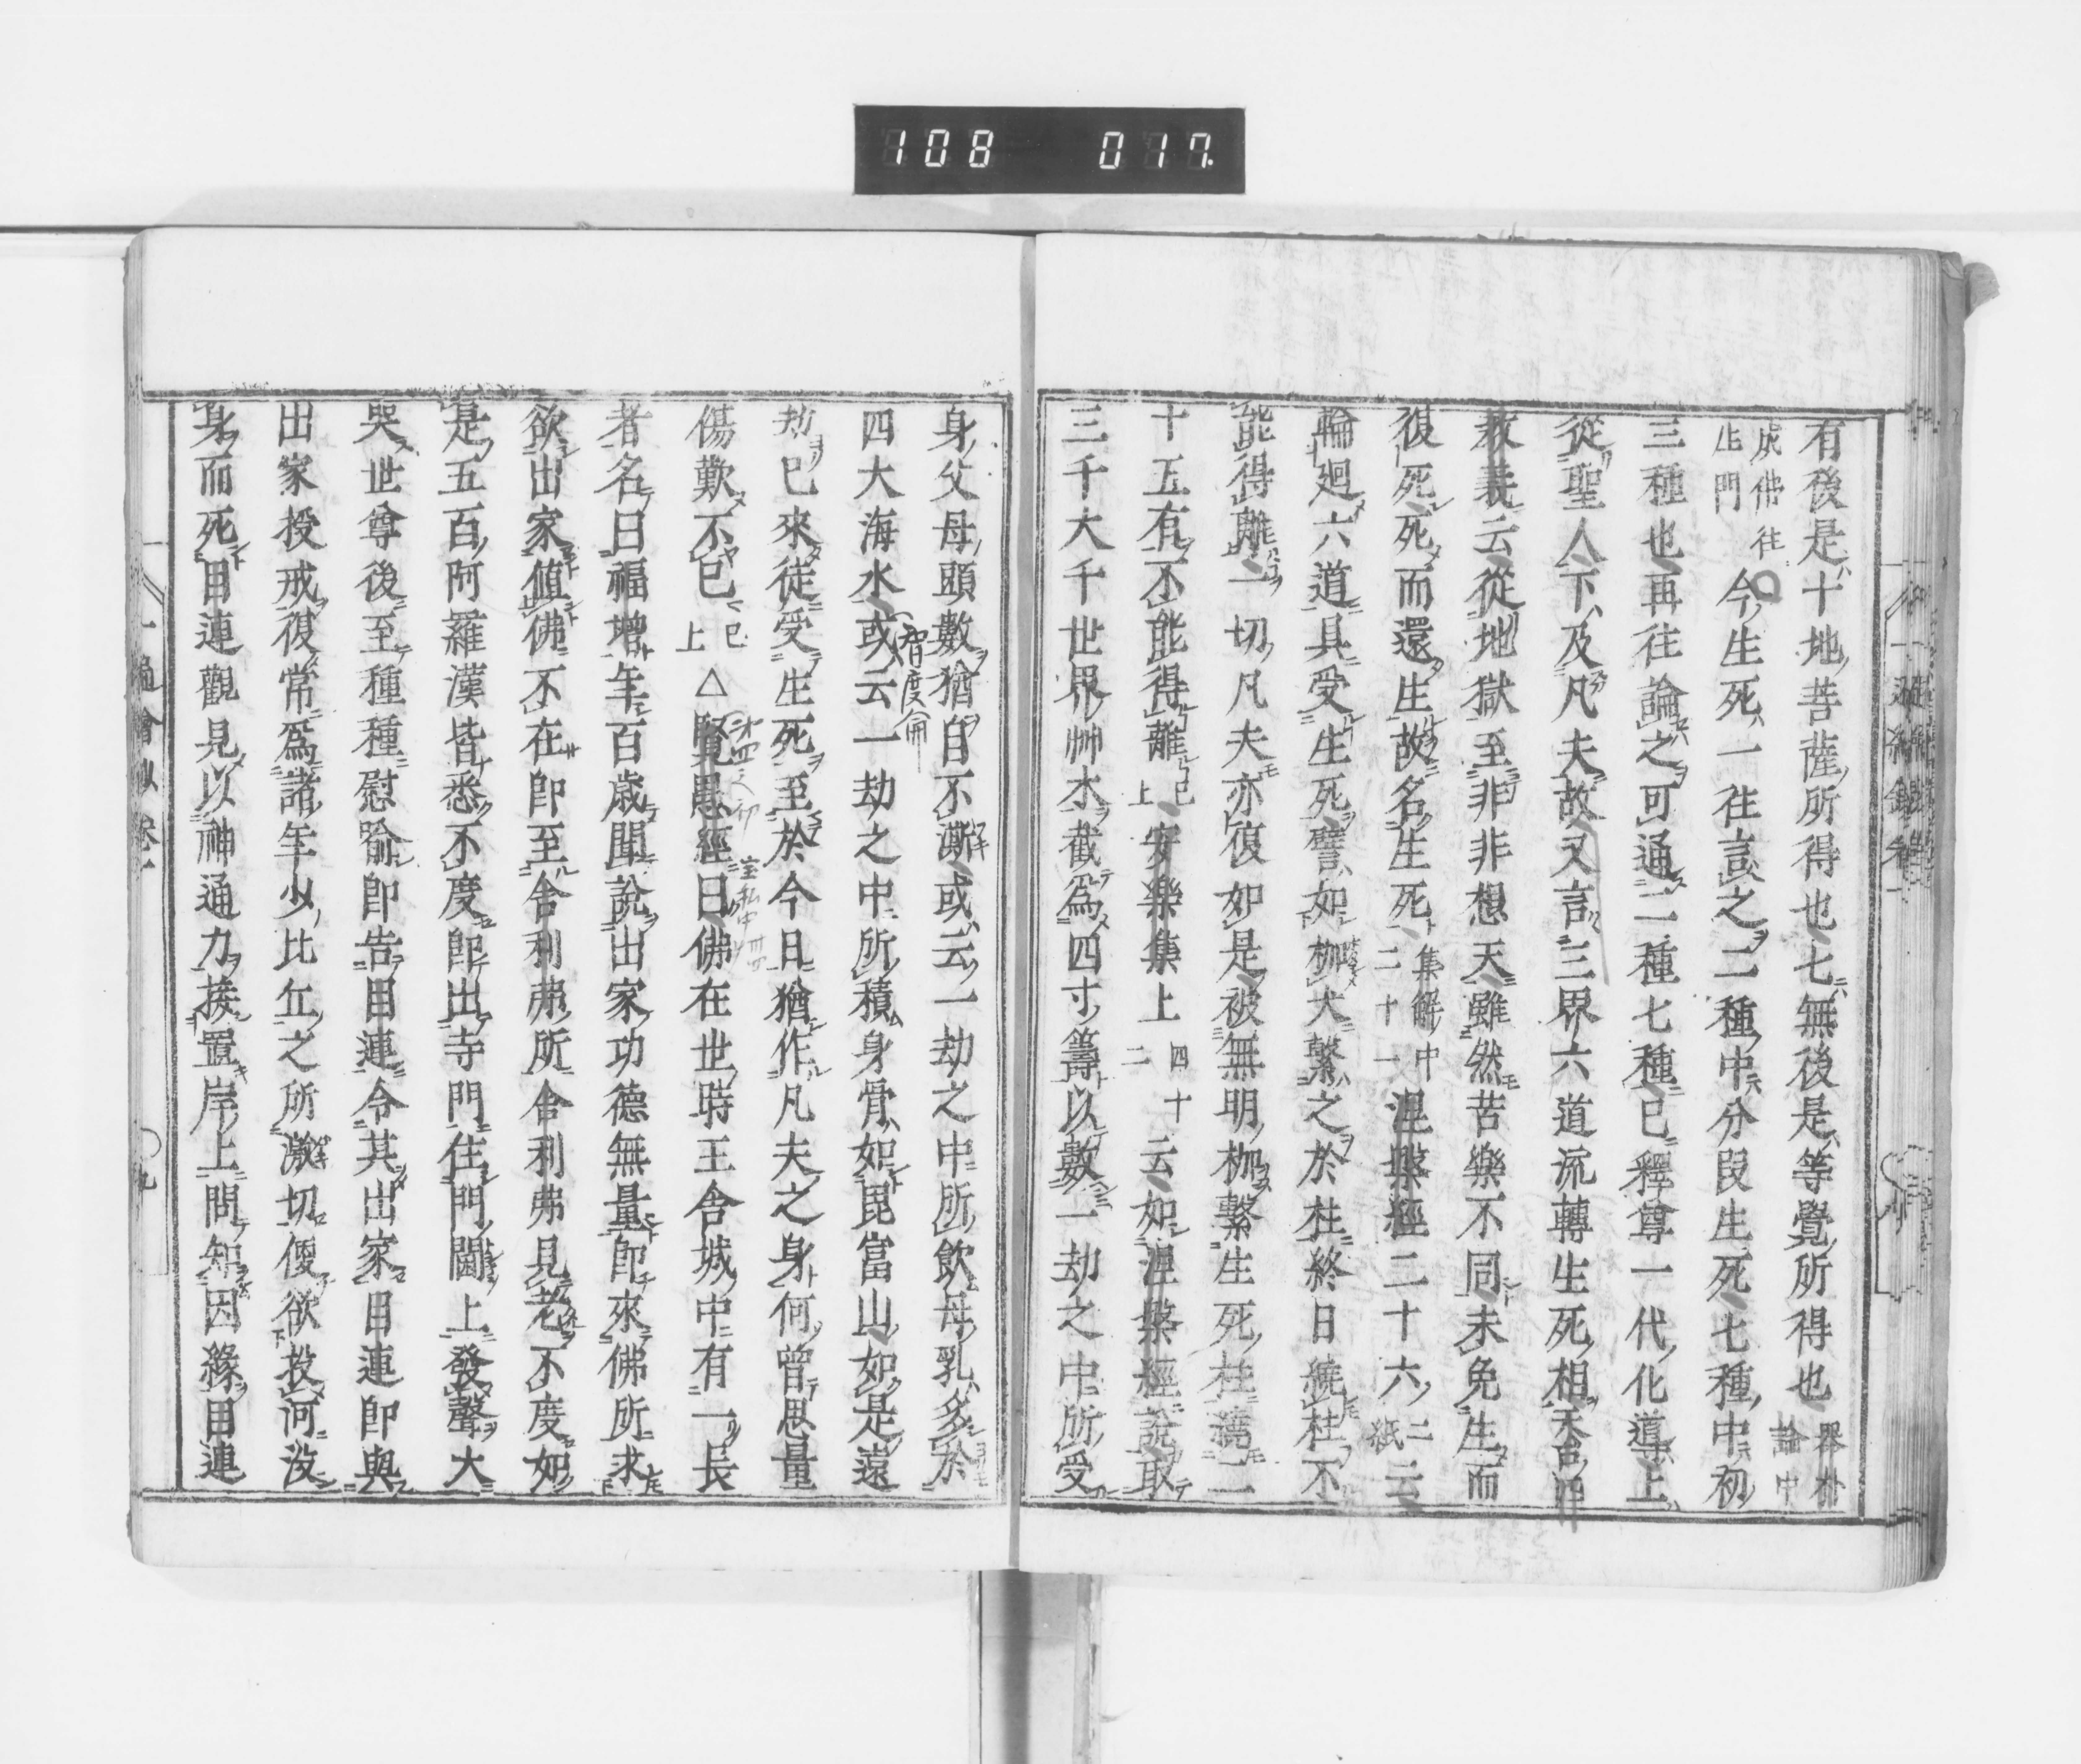 108 017
有後是十地菩薩所得也七無後是等覺所得也
成佛往
生門
今生死一往言之二種中分段生死七種中初
三種也再往論之可通二種七種已釋尊一代化導上
從聖人下及凡夫故又言三界六道流轉生死相天台四
教義云從地獄至非非想天雖然苦樂不同未免生而
復死死而還生故名生死
集解中
二十一
涅槃經二十六
二
紙
云
輪廻六道具受生死譬如枷犬繫之於柱終日繞柱不
能得離一切凡夫亦復如是被無明枷繫生死柱繞二
十五有不能得離
已
上
安樂集上
四十
二
云如涅槃經説取
三千大千世界艸木截為四寸籌以數一劫之中所受
身父母頭數猶自不漸或云一劫之中所飲母乳多於
四大海水或云一劫之中所積身骨如毘富山如是遠
智度論
劫已來徒受生死至於今日猶作凡夫之身何曾思量
傷歎不已
已
上
△賢愚經曰佛在世時王舍城中有一長
者名曰福增年百歳聞説出家功德無量即來佛所求
欲出家値佛不在即至舍利弗所舍利弗見老不度如
是五百阿羅漢皆悉不度即出寺門住門閫上發聲大
哭世尊後至種種慰喩即告目連令其出家目連即與
出家授戒復常爲諸年少比丘之所激切便欲投河没
身而死目連觀見以神通力接置岸上問知因緣目連